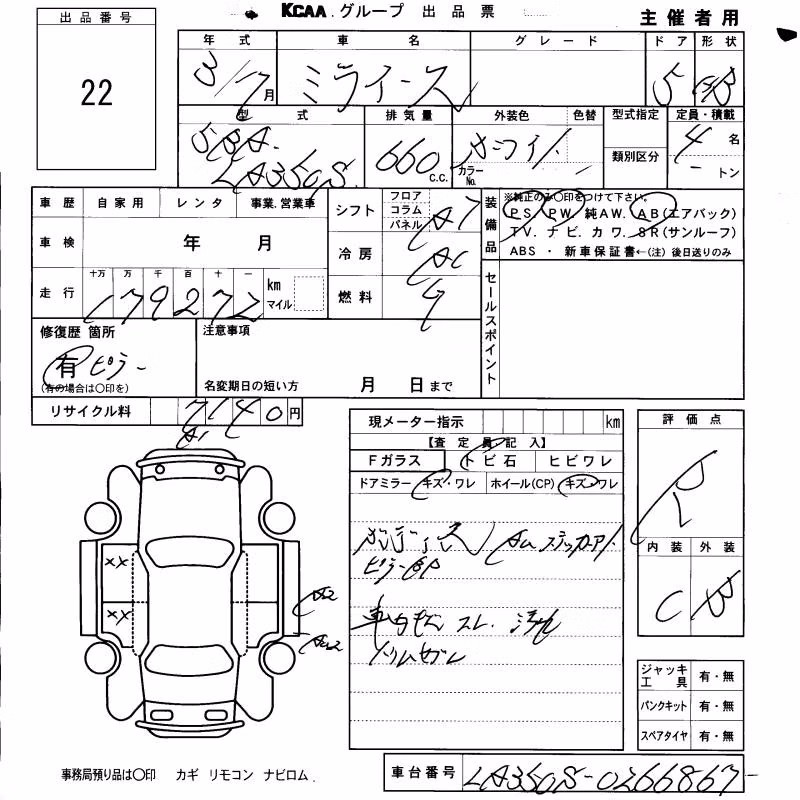 KCAA グループ 出品票
主催者用
出品番号
22
年式 車名 グレード ドア 形状
3/7月 ミライース 5 HB
型式 排気量 外装色 色替 型式指定 定員・積載
5BA
LA350S 660 c.c. カラーNo. 類別区分 4名
－トン
車歴 自家用 レンタ 事業.営業車
シフト フロア コラム パネル AT
装備品
※純正のみ〇印をつけて下さい。
PS PW 純AW. AB(エアバック)
TV. ナビ. カワ. SR(サンルーフ)
ABS ・ 新車保証書←(注) 後日送りのみ
車検 年 月
冷房 AC
走行 十万 万 千 百 十 一 km マイル
179272
燃料
セールスポイント
修復歴 箇所
有 ピラー
(有の場合は〇印を)
注意事項
名変期日の短い方 月 日まで
リサイクル料 7140円
A1
現メーター指示 km
【査定員記入】
Fガラス トビ石 ヒビワレ
ドアミラー キズ・ワレ ホイール(CP) キズ・ワレ
評価点
R
内装 外装
C B
XX
XX
A2
ピラーBP
スレ. 汚れ
ジャッキ工具 有・無
パンクキット 有・無
スペアタイヤ 有・無
事務局預り品は〇印 カギ リモコン ナビロム.
車台番号 LA350S-0266867-